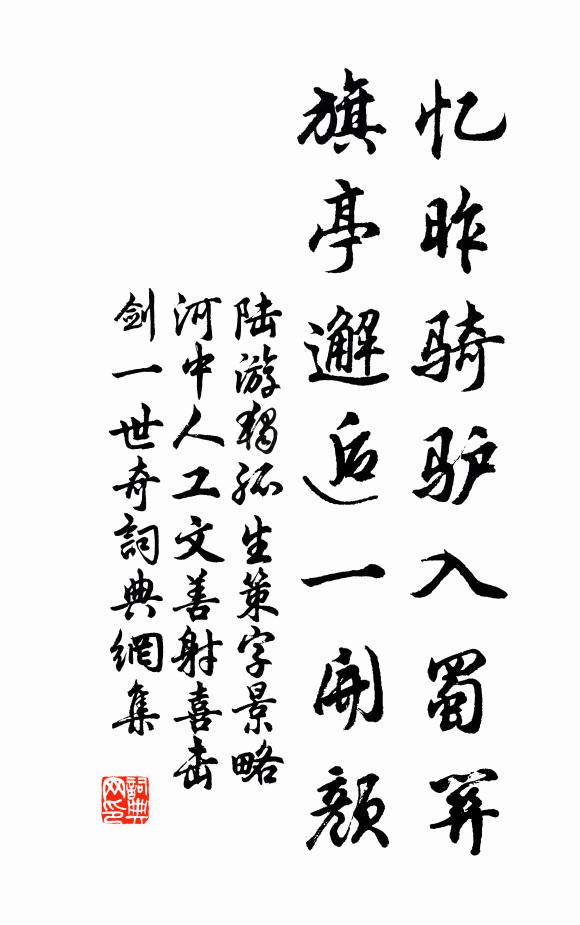 忆昨骑驴入蜀关
旗亭邂逅一开颜
陆游独孤生策字景略
河中人工文善射喜击
剑一世奇詞典網集
詞典网印